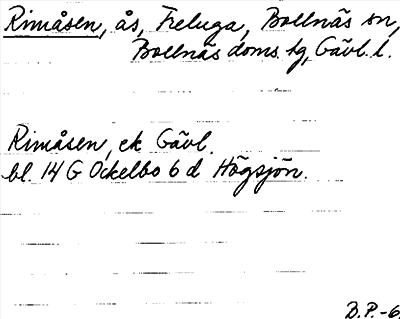 Rimåsen, ås, Freluga, Bollnäs sn,
Bollnäs doms. hg, Gävl. l.
Rimåsen, ek Gävl.
bl. 14 G Ockelbo 6 d Högsjön.
B.P.-6